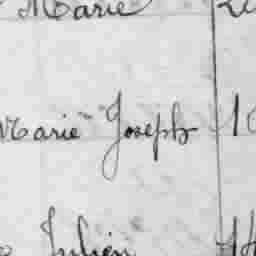 Marie
Marie Joseph 10
Julien